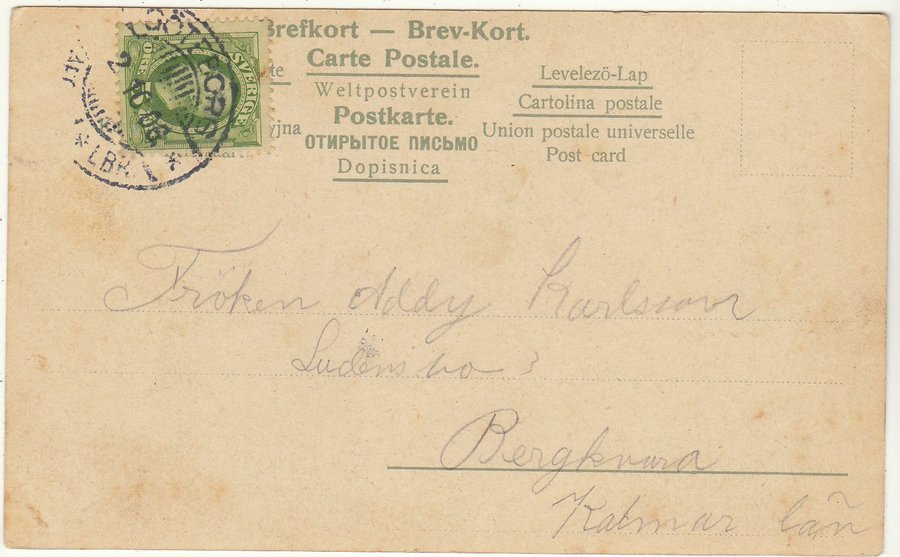 Brefkort — Brev-Kort.
Carte Postale.
Weltpostverein
Postkarte.
ОТКРЫТОЕ ПИСЬМО
Dopisnica
Levelezö-Lap
Cartolina postale
Union postale universelle
Post card
SVERIGE
LBR.
Fröken Addy Karlsson
3
Bergkvara
Kalmar län